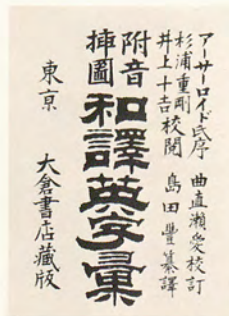 アーサーロイド氏序
杉浦重剛
井上十吉校閲
曲直瀬愛校訂
島田豐纂譯
附音
挿圖
和譯英字彙
東京
大倉書店藏版